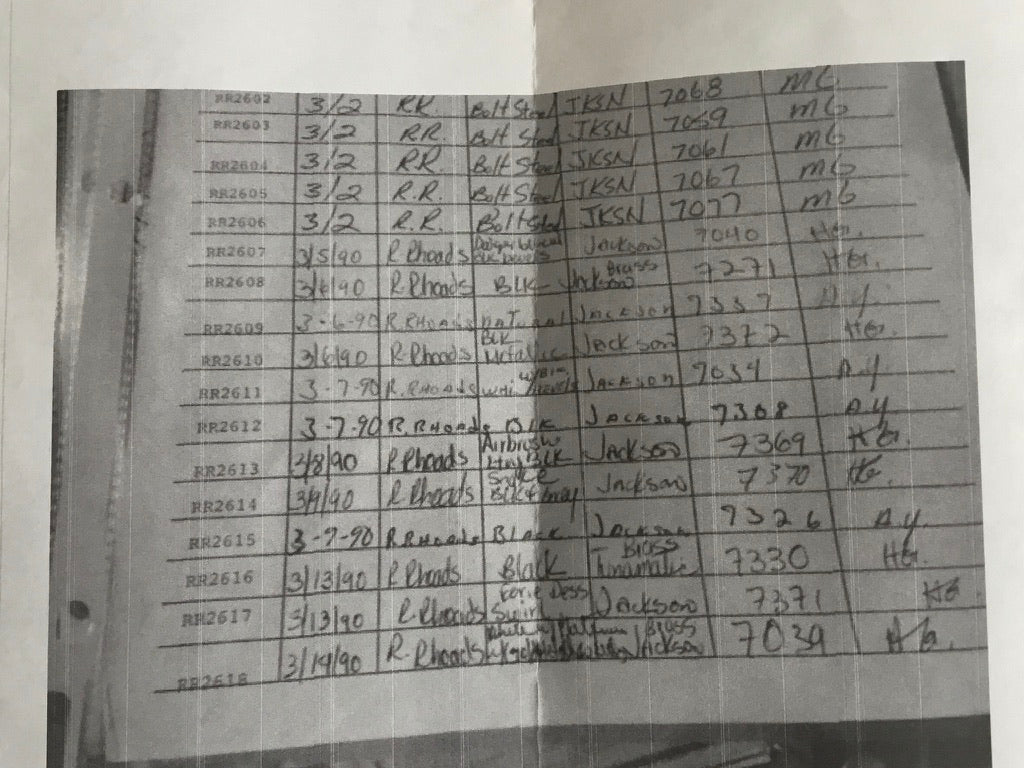 RR2602 3/2 R.R. Bolt Steel JKSN 7068 MG
RR2603 3/2 R.R. Bolt Steel JKSN 7059 MG
RR2604 3/2 R.R. Bolt Steel JKSN 7061 MG
RR2605 3/2 R.R. Bolt Steel JKSN 7067 MG
RR2606 3/2 R.R. Bolt Steel JKSN 7077 MG
RR2607 3/5/90 R Rhoads Jackson 7040 HG.
RR2608 3/6/90 R Rhoads BLK Brass Jackson 7271 HG.
RR2609 3-6-90 R.RHoads naTural Jackson 7337 D.Y.
RR2610 3/6/90 R Rhoads BLK Metallic Jackson 7372 HG.
RR2611 3-7-90 R.RHoads WHi w/BLK Bevels JAckson 7034 D.Y.
RR2612 3-7-90 R.RHoads BLK JAckson 7308 D.Y.
RR2613 3/8/90 R Rhoads Airbrush Jackson 7369 HG.
RR2614 3/9/90 R Rhoads Snake BLK & Grey Jackson 7370 HG.
RR2615 3-9-90 R.RHoads BLack JAckson 7326 D.Y.
RR2616 3/13/90 R Rhoads Black Brass 7330 HG.
RR2617 3/13/90 R.Rhoads Swirl Jackson 7371 HG
RR2618 3/14/90 R.Rhoads White w/ Platinum Brass Jackson 7039 HG.